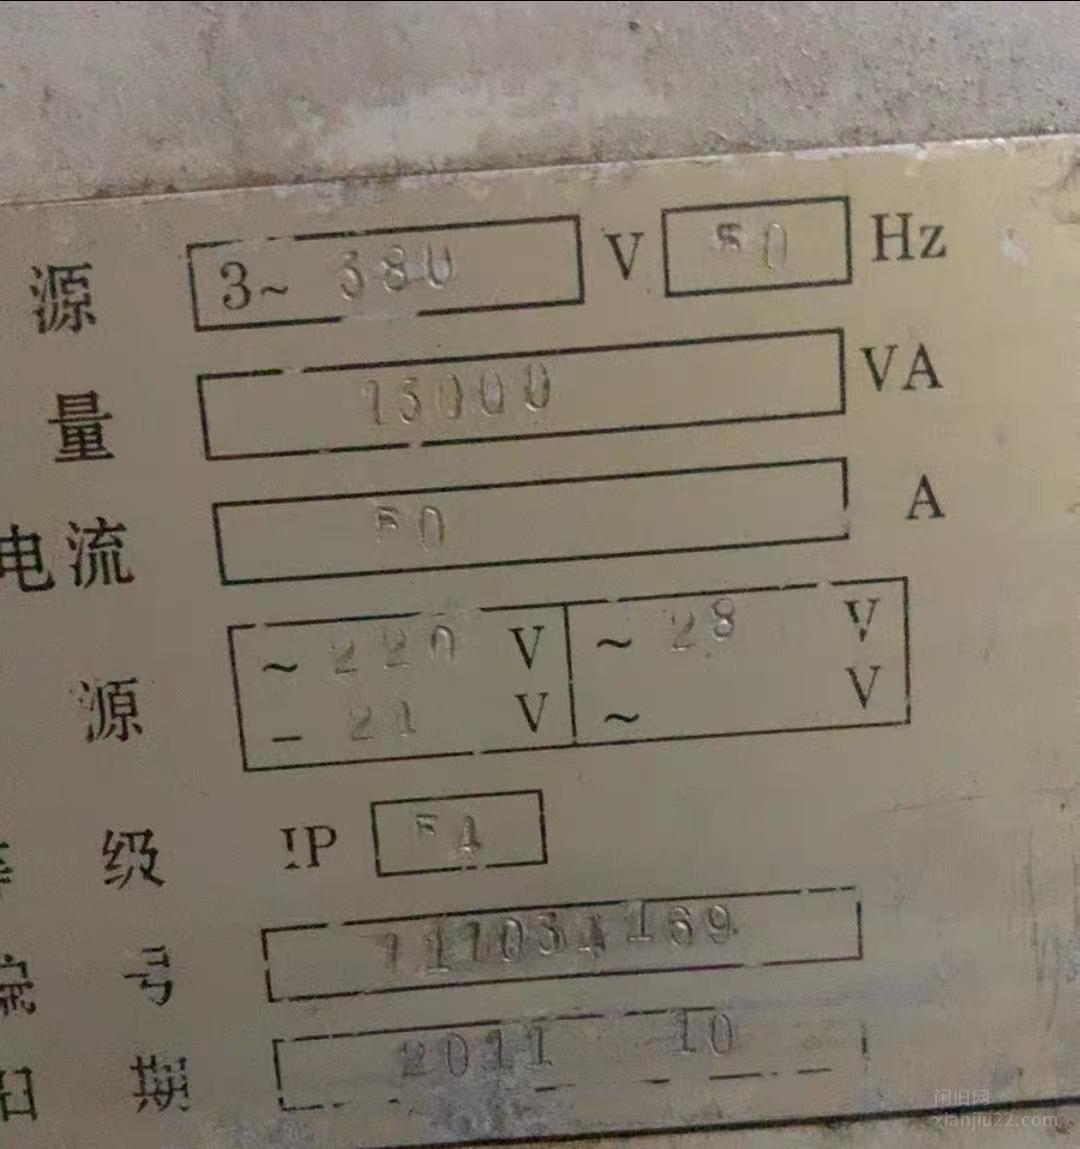 源 3~ 380 V 50 Hz
量 15000 VA
电流 50 A
~ 220 V ~ 28 V
源 - 24 V ~ V
级 IP 54
编号 111034169
日期 2011 10
闲旧网
xianjiu22.com